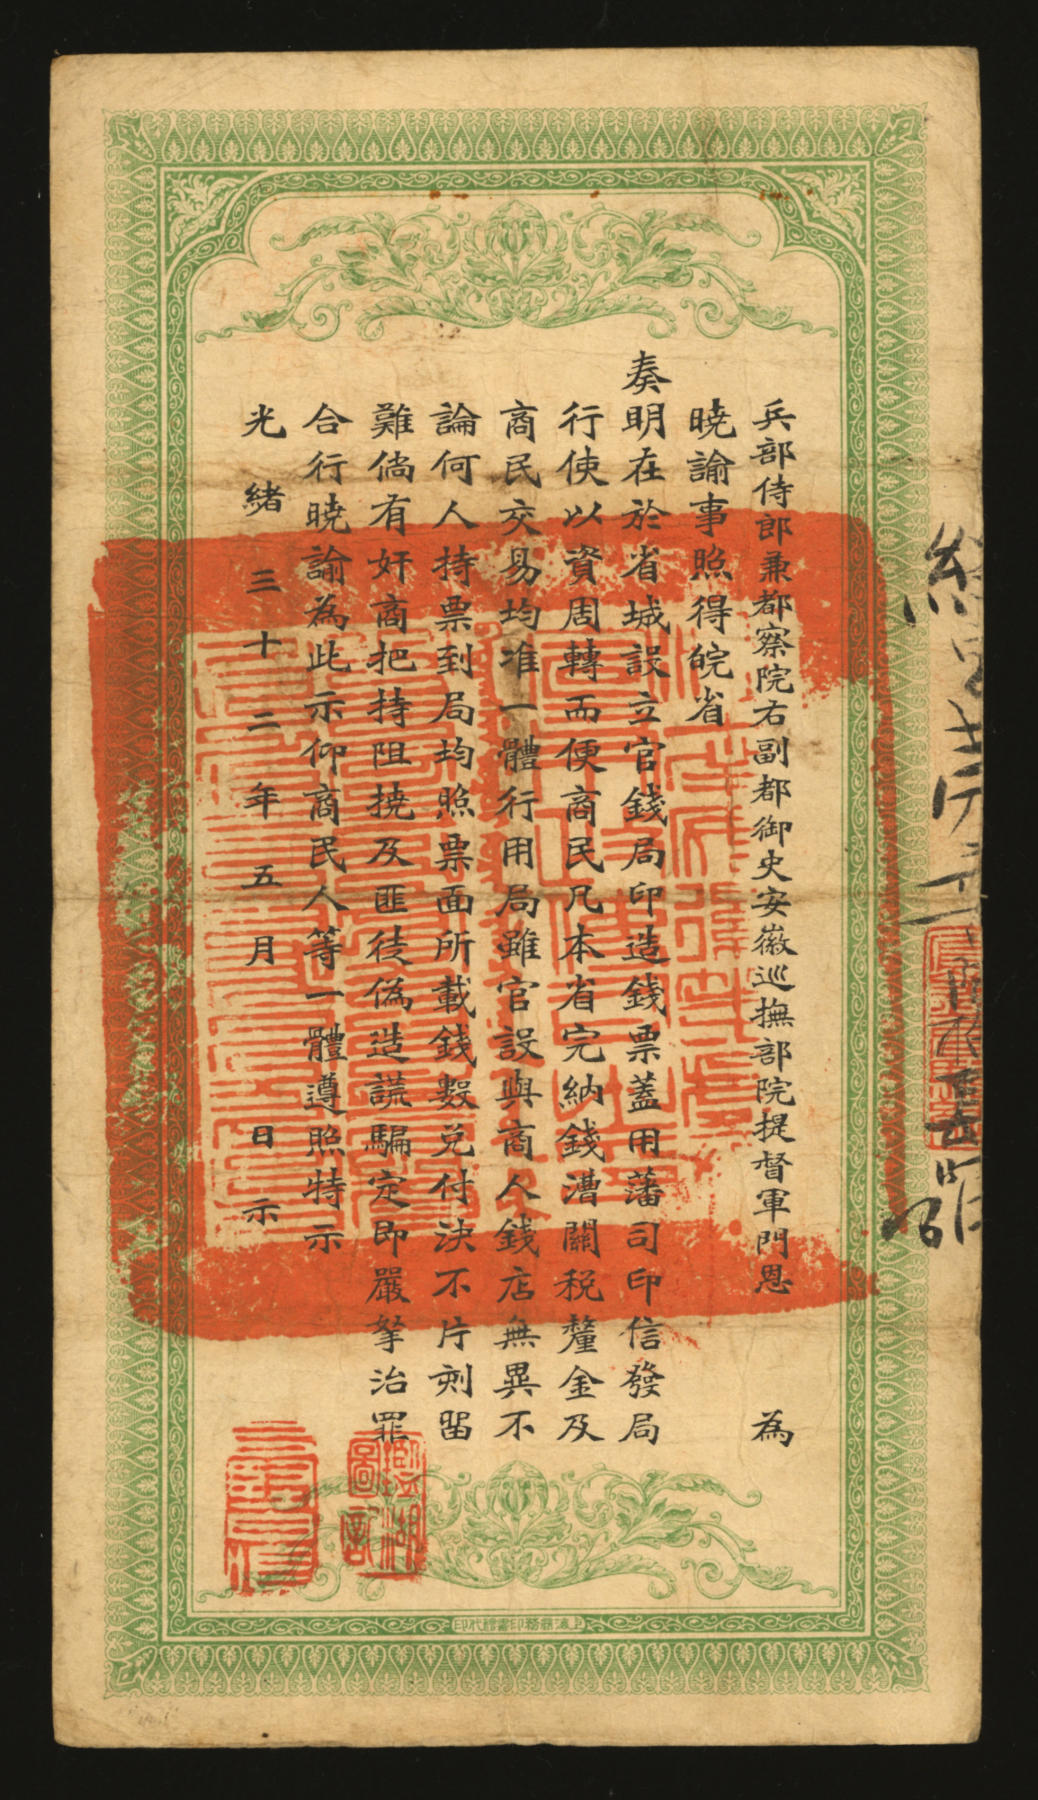 兵部侍郎兼都察院右副都御史安徽巡撫部院提督軍門恩　為
曉諭事照得皖省
奏明在於省城設立官錢局印造錢票蓋用藩司印信發局
行使以資周轉而便商民凡本省完納錢漕關稅釐金及
商民交易均准一體行用局雖官設與商人錢店無異不
論何人持票到局均照票面所載錢數兌付決不片刻留
難倘有奸商把持阻撓及匪徒偽造謊騙定即嚴拏治罪
合行曉諭為此示仰商民人等一體遵照特示
光緒三十二年五月　日示
圖記
上海商務印書館代印